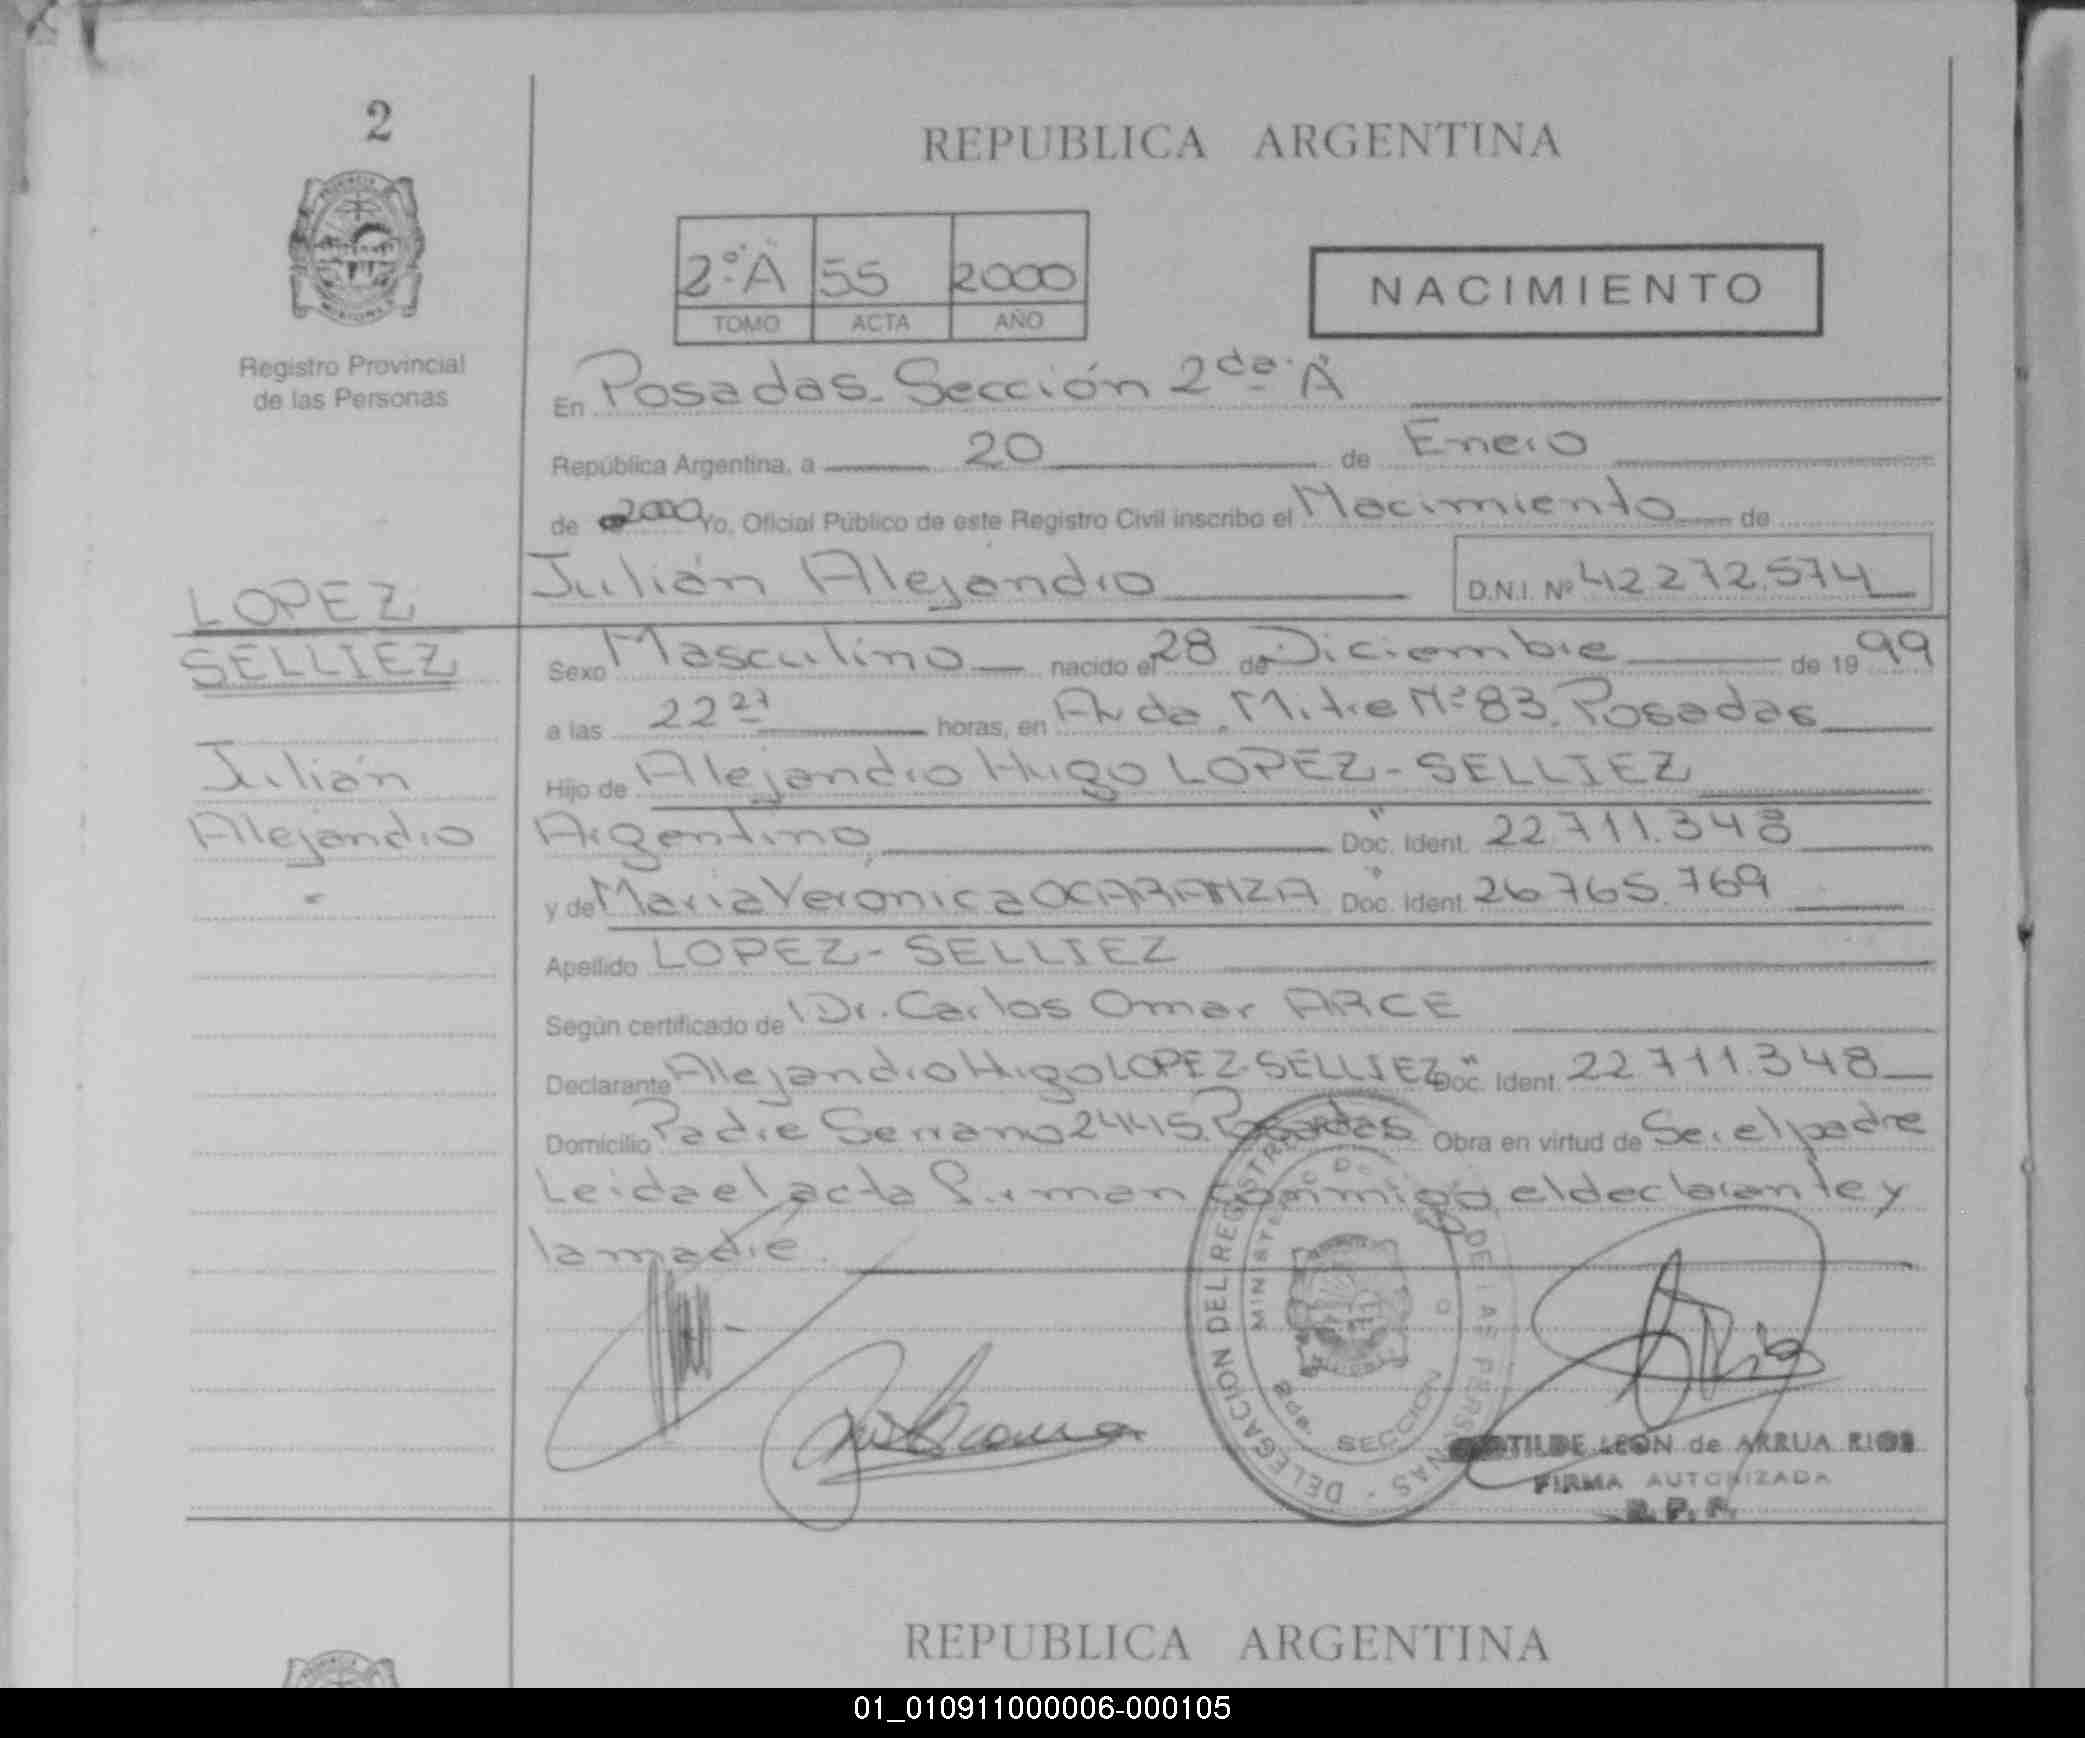 2
REPUBLICA ARGENTINA
2º A 55 2000
TOMO ACTA AÑO
NACIMIENTO
Registro Provincial
de las Personas
En Posadas - Sección 2da. A
República Argentina, a 20 de Enero
de 2000 Yo, Oficial Público de este Registro Civil inscribo el Nacimiento de
Julián Alejandro D.N.I. Nº 42272.574
LOPEZ
SELLIEZ
Julián
Alejandro
Sexo Masculino nacido el 28 de Diciembre de 19 99
a las 22 27 horas, en Avda. Mitre Nº 83. Posadas
Hijo de Alejandro Hugo LOPEZ - SELLIEZ
Argentino, Doc. Ident. 22711.348
y de María Verónica OCARANZA Doc. Ident. 26765.769
Apellido LOPEZ - SELLIEZ
Según certificado de Dr. Carlos Omar ARCE
Declarante Alejandro Hugo LOPEZ-SELLIEZ Doc. Ident. 22711.348
Domicilio Padre Serrano 2445. Posadas Obra en virtud de Ser el padre
Leida el acta firman conmigo, el declarante y
la madre.
DELEGACION DEL REGISTRO DE LAS PERSONAS
MINISTERIO DE
SECCION
TILDE LEON de ARRUA RIOS
FIRMA AUTORIZADA
R. P. P.
REPUBLICA ARGENTINA
01_010911000006-000105